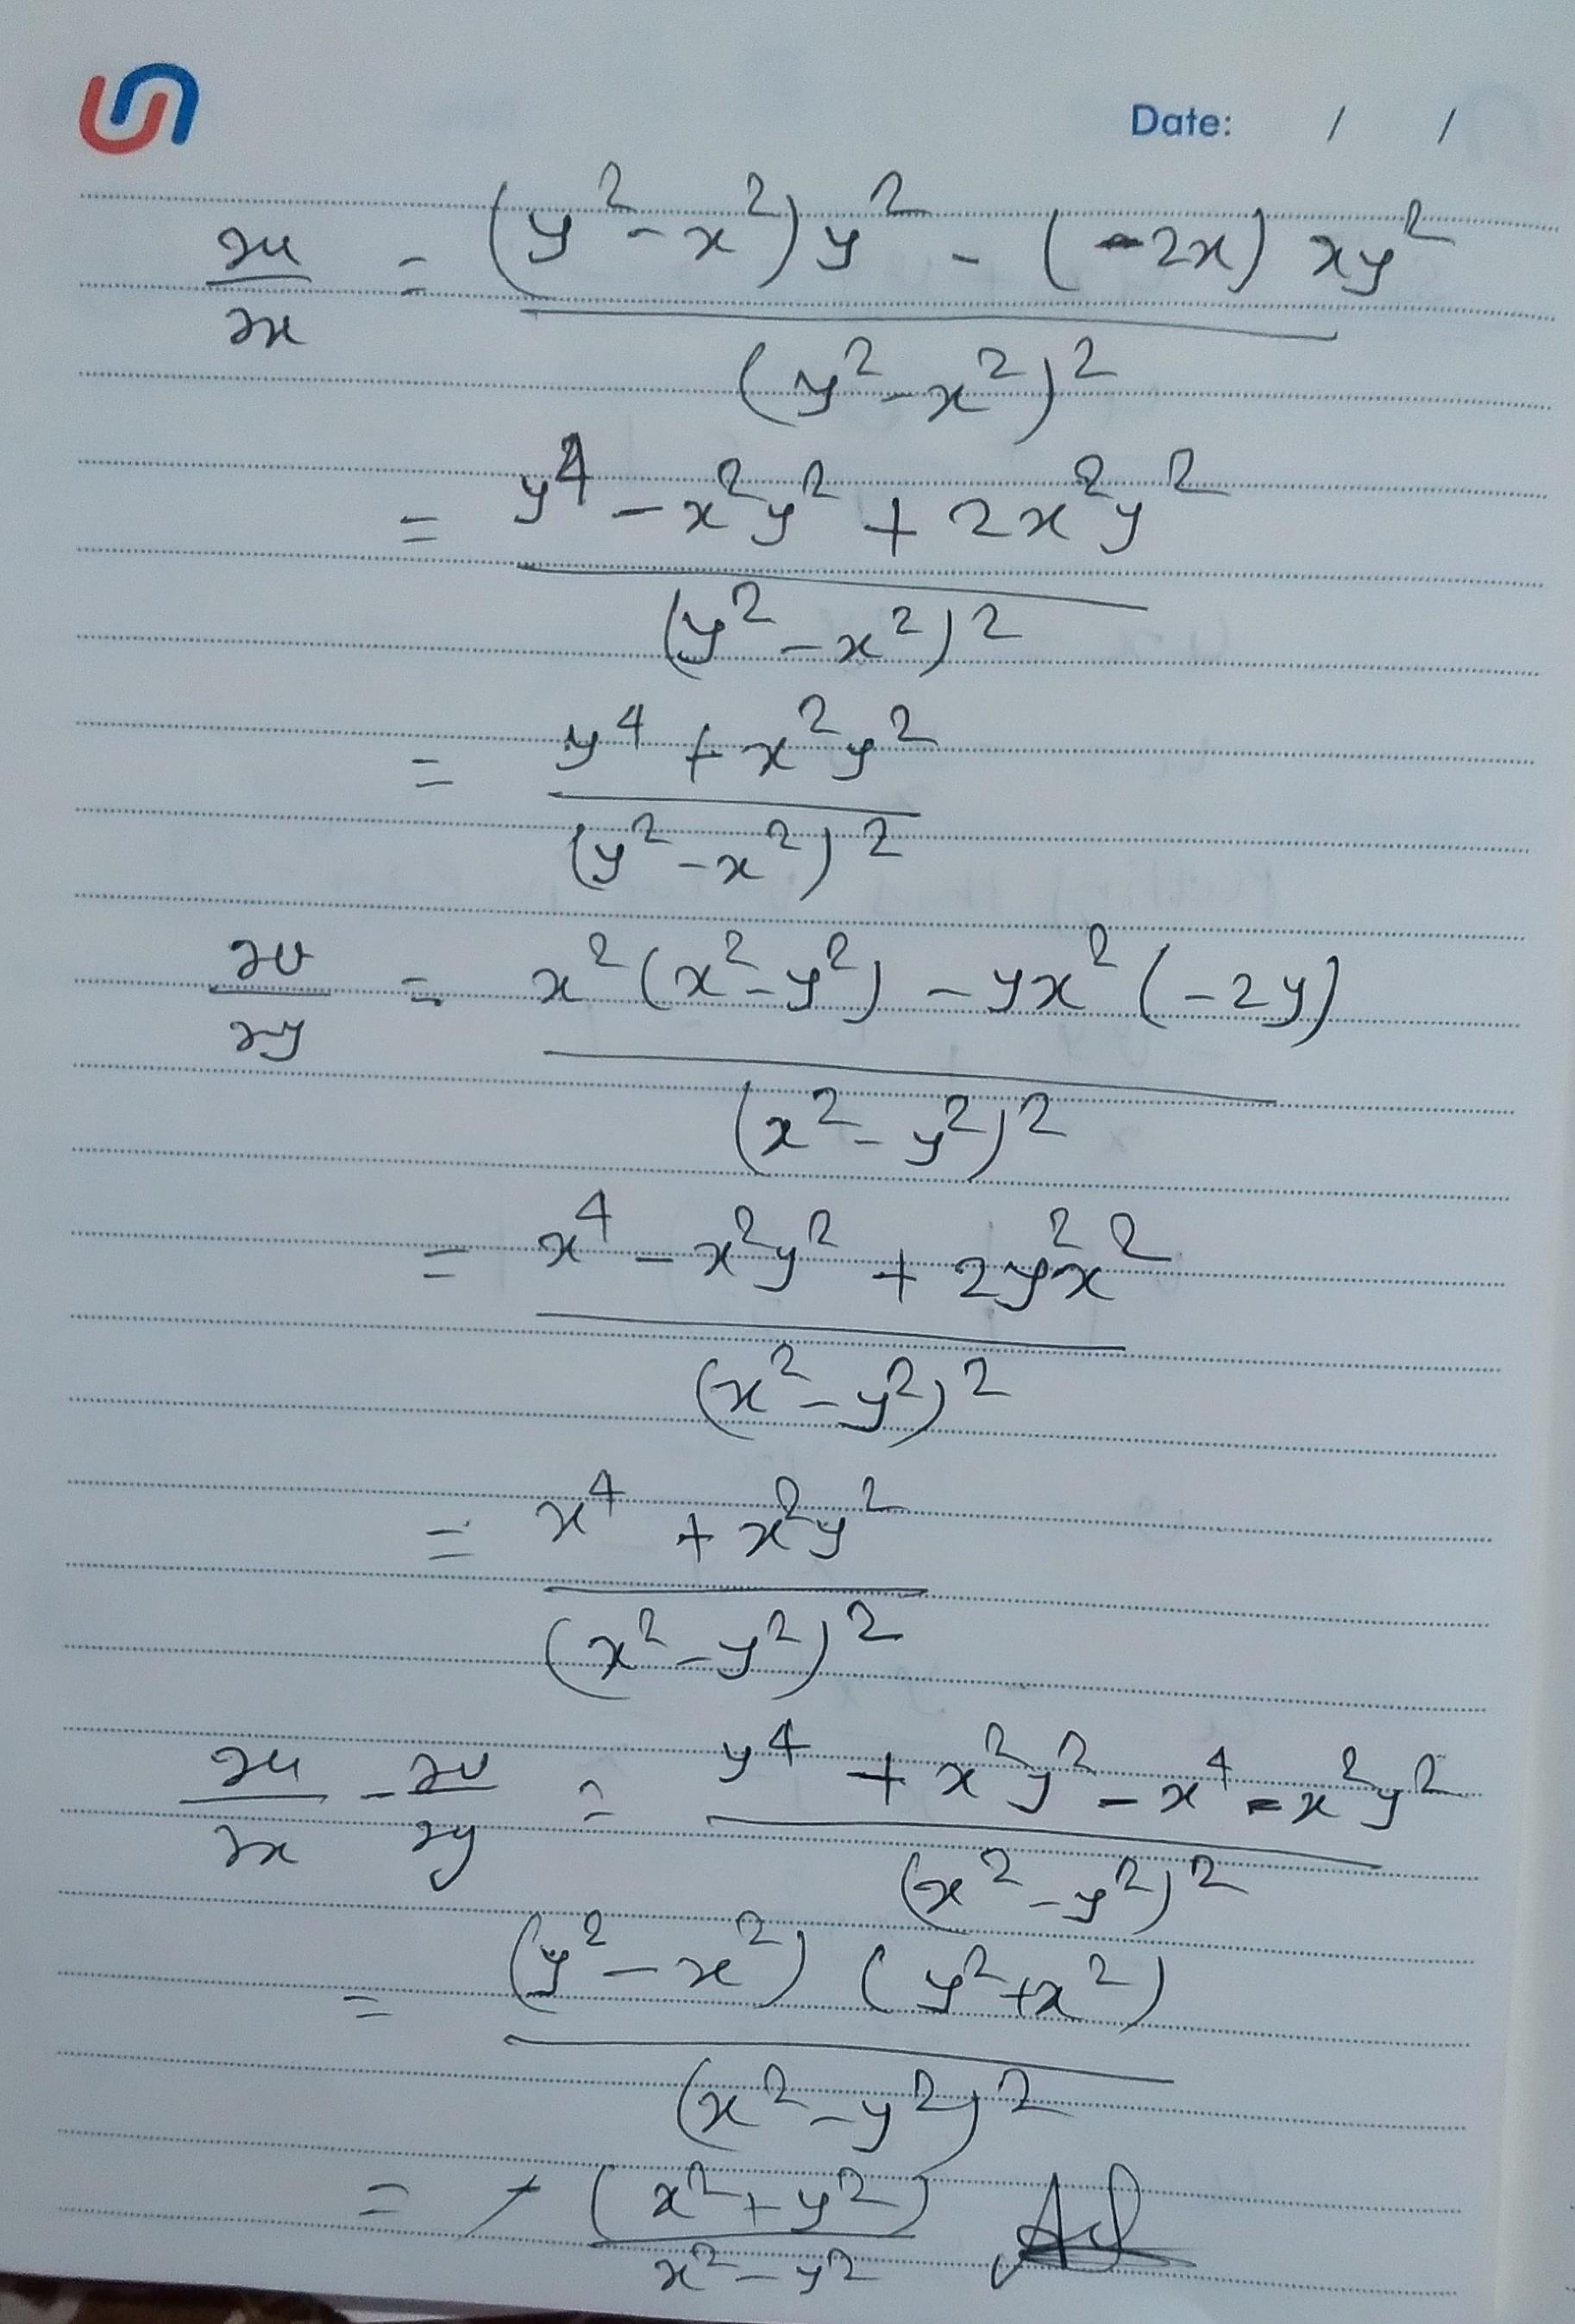 Date: / /
∂u/∂x = ((y² - x²) y² - (-2x) xy²) / (y² - x²)²
= (y⁴ - x²y² + 2x²y²) / (y² - x²)²
= (y⁴ + x²y²) / (y² - x²)²
∂v/∂y = (x² (x² - y²) - yx² (-2y)) / (x² - y²)²
= (x⁴ - x²y² + 2y²x²) / (x² - y²)²
= (x⁴ + x²y²) / (x² - y²)²
∂u/∂x - ∂v/∂y = (y⁴ + x²y² - x⁴ - x²y²) / (x² - y²)²
= ((y² - x²) (y² + x²)) / (x² - y²)²
= - (x² + y²) / (x² - y²)